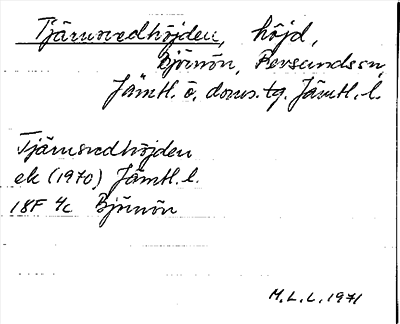 Tjärnvedhöjden, höjd,
Björnön, Revsunds sn,
Jämtl. ö. doms. tg. Jämtl. l.
Tjärnvedhöjden
ek (1970) Jämtl. l.
18F 4c Björnön
M.L.L. 1971